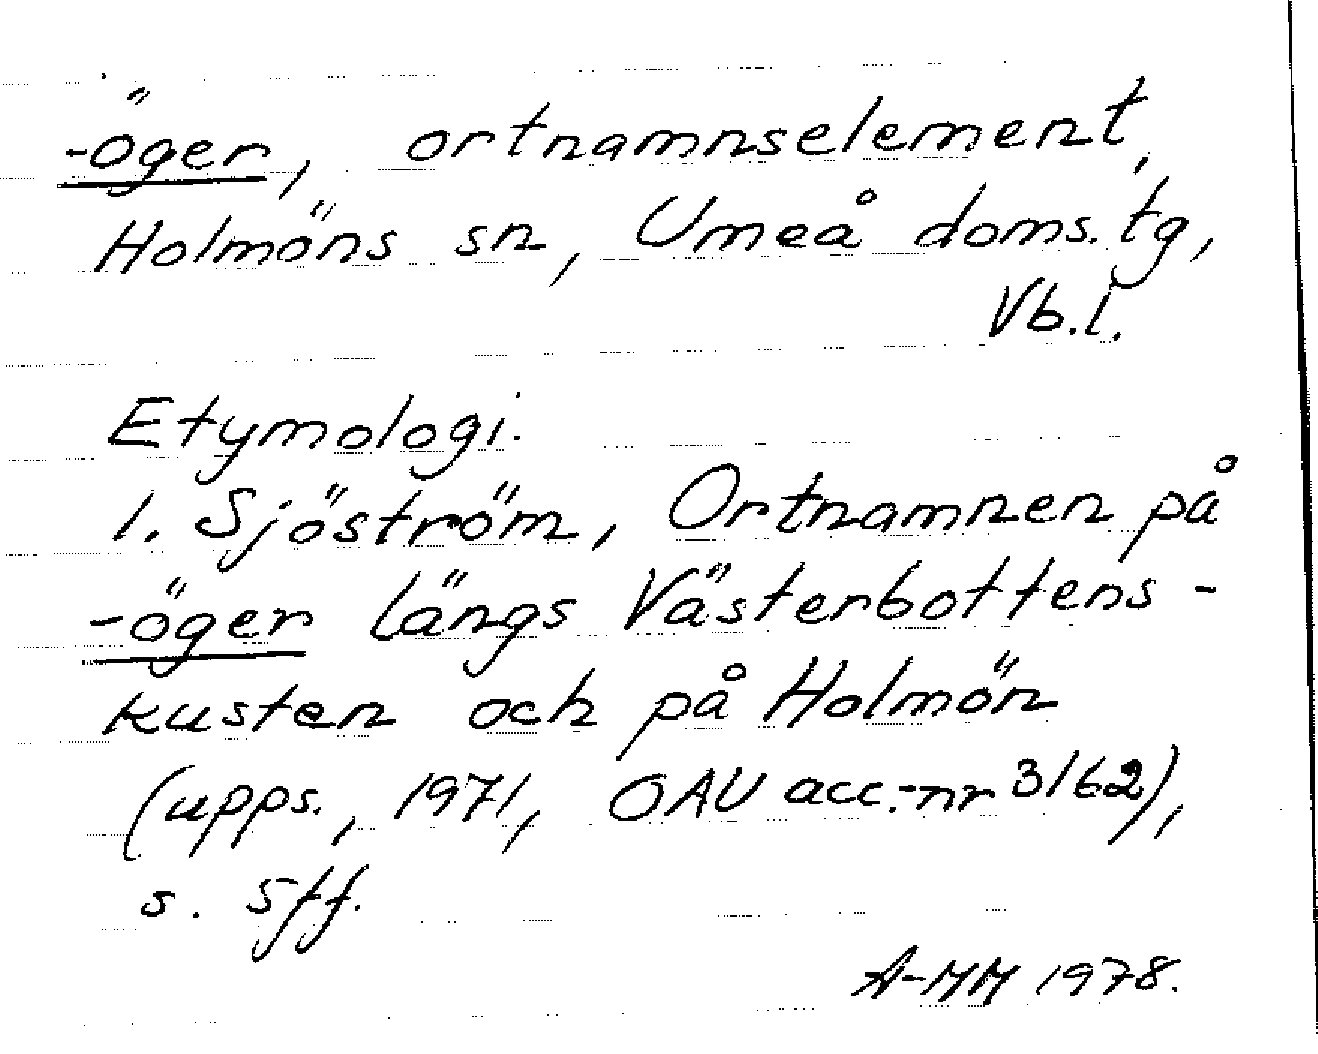 -öger, ortnamnselement,
Holmöns sn, Umeå doms.tg,
Vb.l.
Etymologi.
I. Sjöström, Ortnamnen på
-öger längs Västerbottens-
kusten och på Holmön
(upps., 1971, OAU acc.-nr 3162),
s. 5ff.
A-MM 1978.